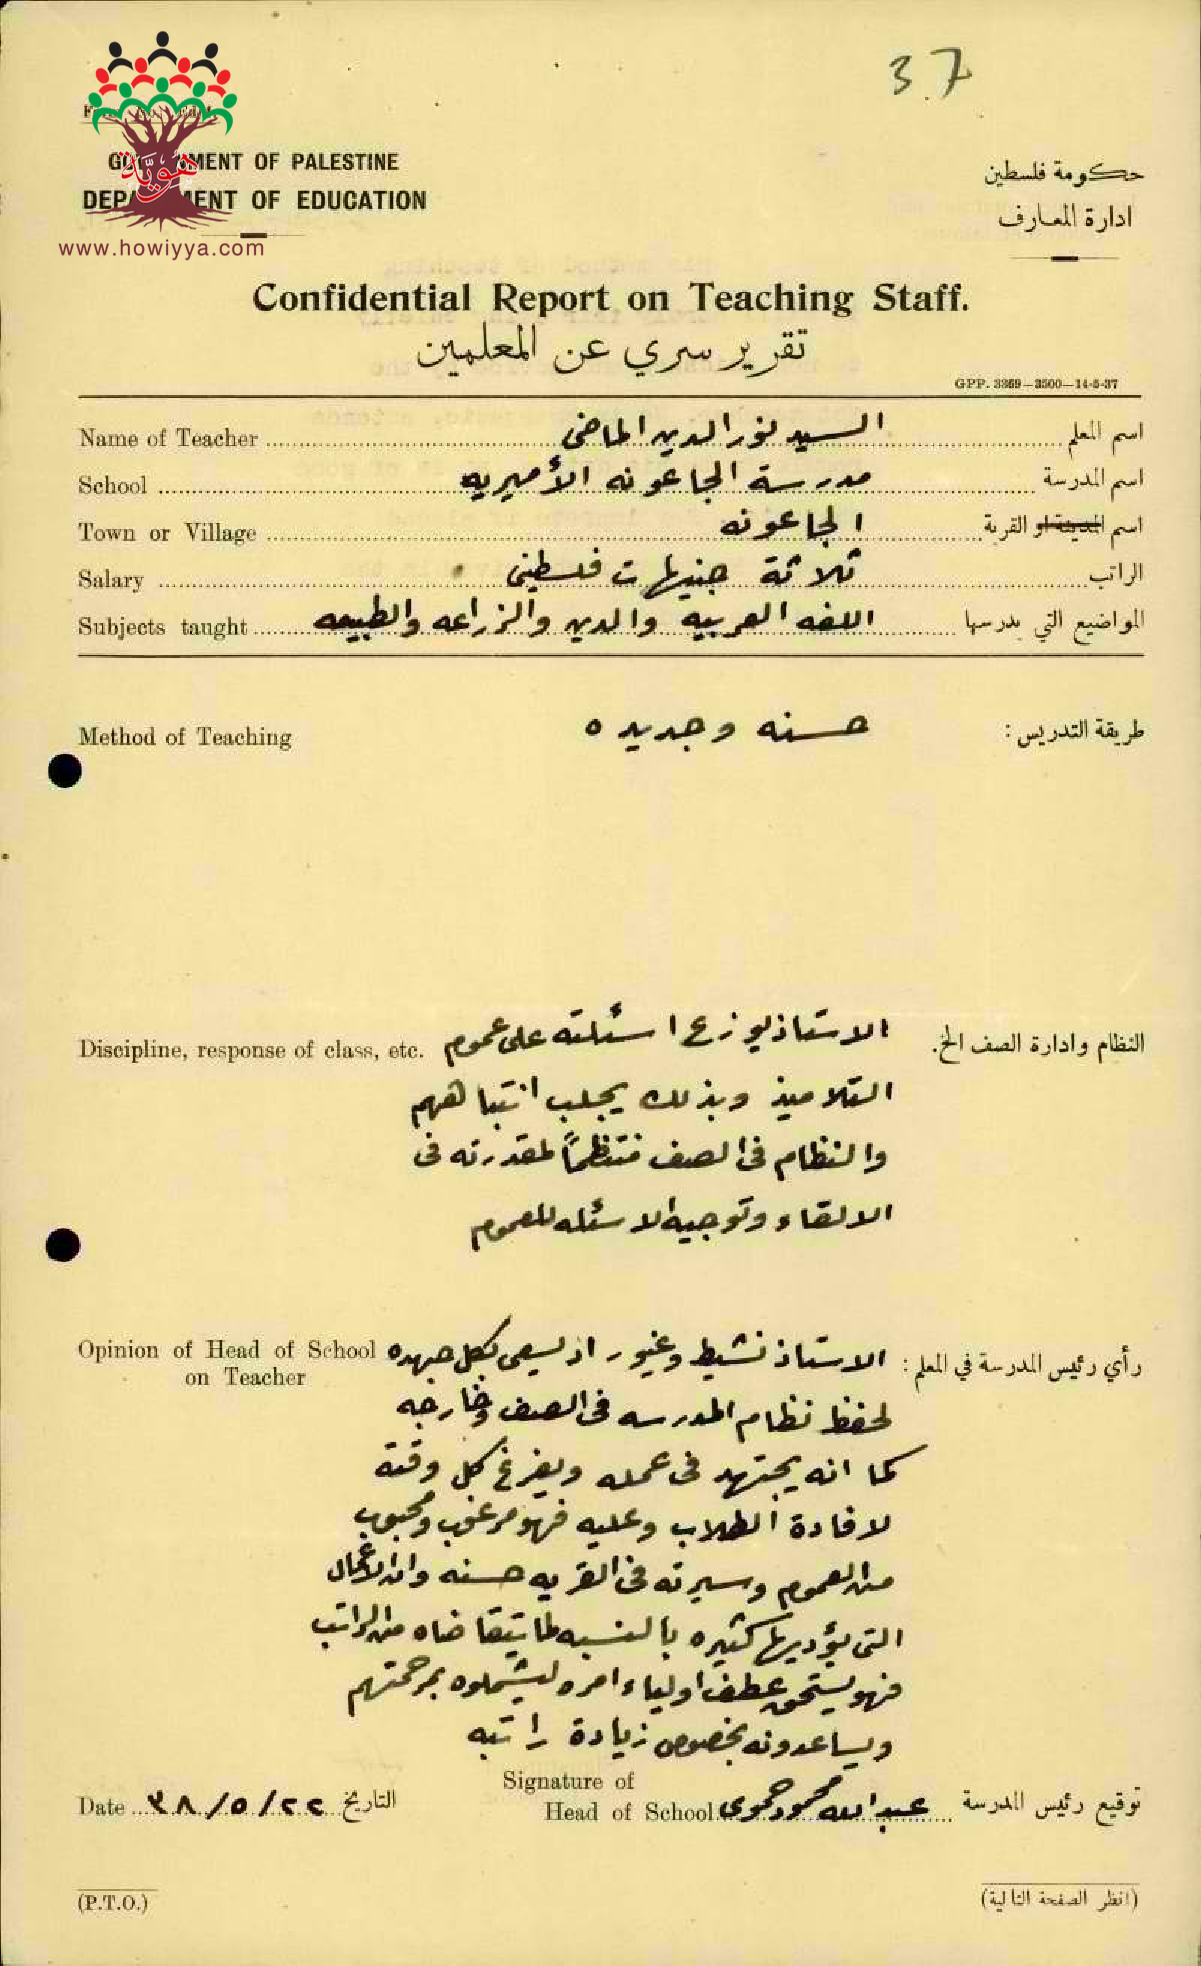 37
هوية
www.howiyya.com
GOVERNMENT OF PALESTINE
DEPARTMENT OF EDUCATION
حكومة فلسطين
ادارة المعارف
Confidential Report on Teaching Staff.
تقرير سري عن المعلمين
GPP. 3369—3500—14-5-37
Name of Teacher السيد نور الدين الماضي اسم المعلم
School مدرسة الجاعونه الأميريه اسم المدرسة
Town or Village الجاعونه اسم المدينة او القرية
Salary ثلاثة جنيهات فلسطيني الراتب
Subjects taught اللغه العربيه والدين والزراعه والطبيعه المواضيع التي يدرسها
Method of Teaching حسنه وجديده طريقة التدريس :
Discipline, response of class, etc. الاستاذ يوزع اسئلته على عموم النظام وادارة الصف الخ.
التلاميذ وبذلك يجلب انتباههم
والنظام في الصف منتظماً لمقدرته في
الالقاء وتوجيه الاسئله للعموم
Opinion of Head of School الاستاذ نشيط وغيور اذ يسعى بكل جهده رأي رئيس المدرسة في المعلم :
on Teacher
لحفظ نظام المدرسه في الصف وخارجه
كما انه يجتهد في عمله ويفرغ كل وقته
لافادة الطلاب وعليه فهو مرغوب ومحبوب
من العموم وسيرته في القريه حسنه وان الاعمال
التي يؤديها كثيره بالنسبه لما يتقاضاه من الراتب
فهو يستحق عطف اولياء امره ليشملوه بمرحمتهم
ويساعدونه بخصوص زيادة راتبه
Signature of
Date ٢٢/٥/٣٨ التاريخ Head of School عبدالله محمود حموى توقيع رئيس المدرسة
(P.T.O.) (انظر الصفحة التالية)